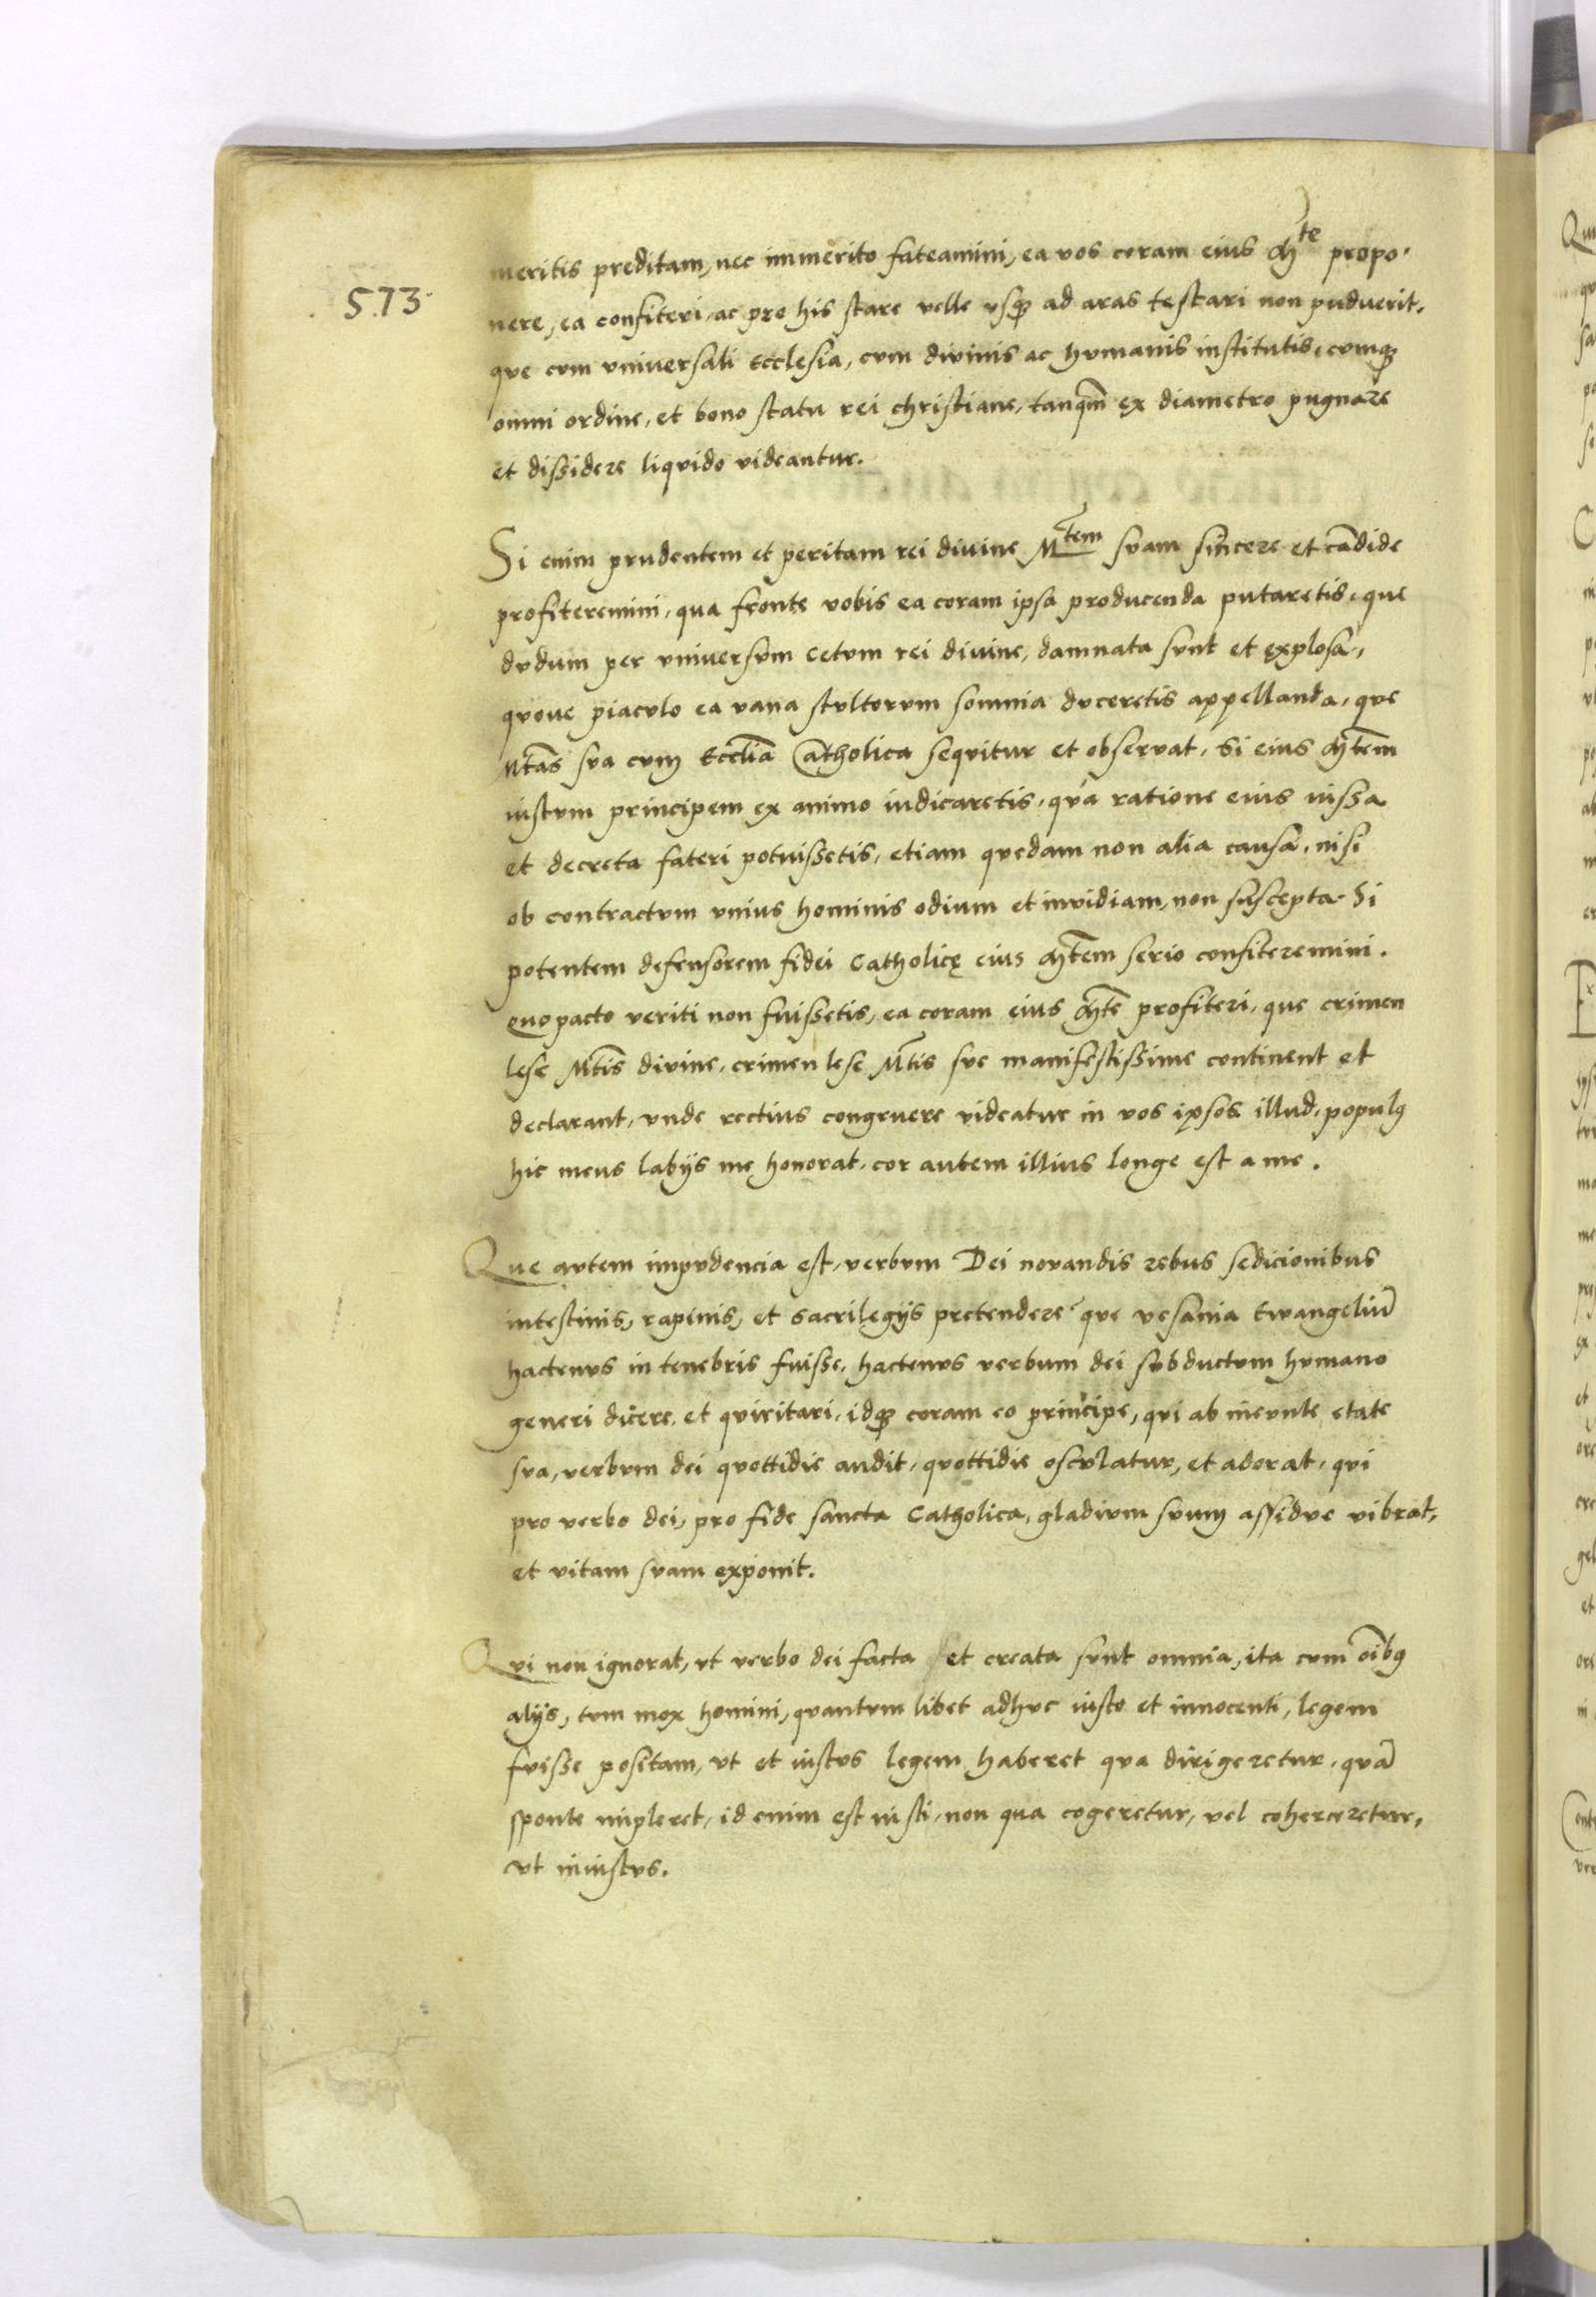 573
meritis preditam, nec immerito fateamini, ea vos coram eius Mte propo-
nere, ea confiteri, ac pro his stare velle vsqꝫ ad aras testari non puduerit,
que cvm vniversali Ecclesia, cvm divinis ac hvmanis institutis, cvmqꝫ
omni ordine, et bono statu rei christiane, tanqm̄ ex diametro pugnare
et dissidere liqvido videantur.
Si enim prudentem et peritam rei diuine Mtem svam sincere et cādide
profiteremini, qua fronte vobis ea coram ipsa producenda putaretis, que
dvdum per vniversvm cetvm rei divine, damnata svnt et explosa,
qvove piacvlo ea vana stvltorvm somnia dvceretis appellanda, qve
Mtās sva cvm Eccliā Catholica seqvitur et observat, Si eius Mtēm
iustvm principem ex animo iudicaretis, qva ratione eius iussa
et decreta fateri potuissetis, etiam qvedam non alia causa, nisi
ob contractvm vnius hominis odium et invidiam, non suscepta. Si
potentem defensorem fidei Catholicę eius Mtēm serio confiteremini.
quo pacto veriti non fuissetis, ea coram eius Mtē profiteri, que crimen
lese Mtīs divine, crimen lese Mtīs sve manifestissime continent et
declarant, vnde rectius congruere videatur in vos ipsos illud, populꝰ
hic meus labijs me honorat, cor autem illius longe est a me.
Que avtem impvdencia est, verbvm Dei novandis rebus sedicionibus
intestinis, rapinis, et sacrilegijs pretendere? qve vesania Ewangeliū
hactenvs in tenebris fuisse, hactenvs verbum dei svbductvm hvmano
generi dicere, et qviritari, idqꝫ coram eo principe, qvi ab inevnte etate
sva, verbvm dei qvottidie audit, qvottidie oscvlatur, et adorat, qvi
pro verbo dei, pro fide sancta Catholica, gladivm svum assidve vibrat,
et vitam svam exponit.
Qvi non ignorat, vt verbo dei facta et creata svnt omnia, ita cvm oībꝰ
alijs, tvm mox homini, qvantvm libet adhvc iusto et innocenti, legem
fvisse positam, vt et iustvs legem haberet qva dirigeretur, qvā
sponte impleret, id enim est iusti, non qua cogeretur, vel coherceretvr,
vt iniustvs.